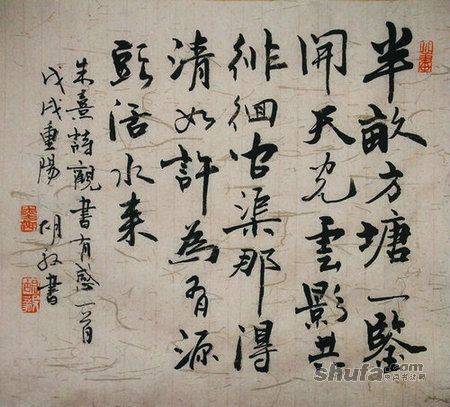 半畝方塘一鑒
開天光雲影共
徘徊問渠那得
清如許為有源
頭活水来
朱熹詩觀書有感一首
戊戌重陽 胡 書
shufa.com
中国书法网